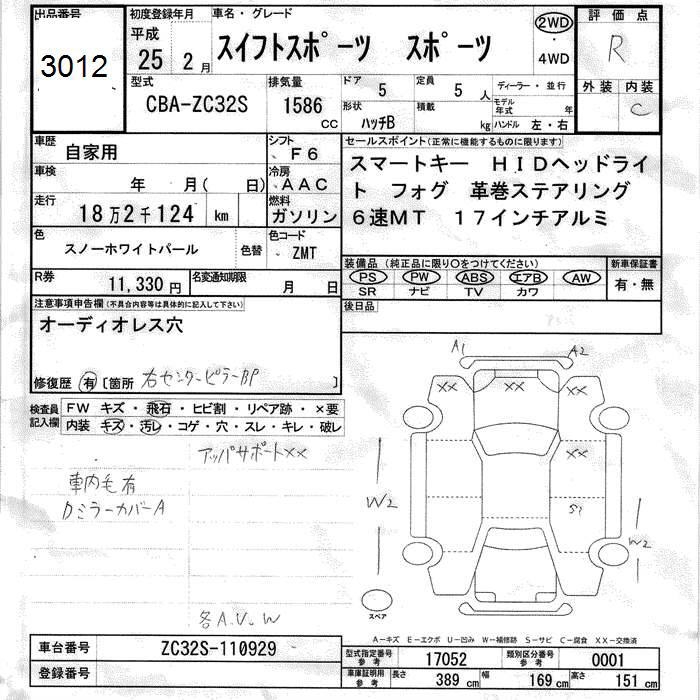 出品番号 3012
初度登録年月 平成 25 2月
車名・グレード スイフトスポーツ スポーツ
2WD 4WD
評価点 R
外装 内装 C
型式 CBA-ZC32S
排気量 1586 CC
ドア 5
形状 ハッチB
定員 5人
積載 kg
ディーラー・並行
モデル年式 年
ハンドル 左・右
車歴 自家用
シフト F6
車検 年 月( 日)
冷房 AAC
走行 18万2千124 km
燃料 ガソリン
色 スノーホワイトパール 色替
色コード ZMT
R券 11,330円
名変通知期限 月 日
セールスポイント(正常に機能するものに限ります)
スマートキー HIDヘッドライ
ト フォグ 革巻ステアリング
6速MT 17インチアルミ
装備品(純正品に限り○をつけてください)
PS PW ABS エアB AW
SR ナビ TV カワ
新車保証書 有・無
後日品
注意事項申告欄(不具合内容等は具体的に記入して下さい)
オーディオレス穴
修復歴 有 [箇所 右センターピラーBP ]
検査員記入欄
FW キズ・飛石・ヒビ割・リペア跡・×要
内装 キズ・汚レ・コゲ・穴・スレ・キレ・破レ
アッパサポートXX
車内毛有
DミラーカバーA
各A.U.W
A1 A2
XX XX XX
XX
W2 S1
W2
スペア
A－キズ E－エクボ U－凹み W－補修跡 S－サビ C－腐食 XX－交換済
車台番号 ZC32S-110929
登録番号
型式指定番号 参考 17052
類別区分番号 参考 0001
車庫証明用 参考 長さ 389 cm 幅 169 cm 高さ 151 cm